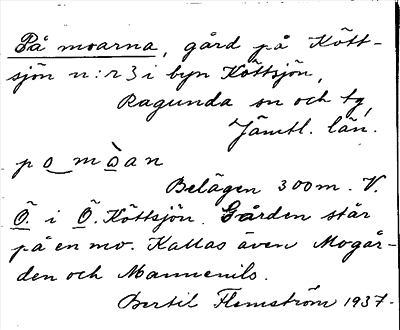 På moarna, gård på Kött-
sjön n:r 3 i byn Köttsjön,
Ragunda sn och tg,
Jämtl. län.
pa mòan
Belägen 300 m. V.
Ö. i Ö. Köttsjön. Gården står
på en mo. Kallas även Mogår-
den och Mannenils.
Bertil Flemström 1937.